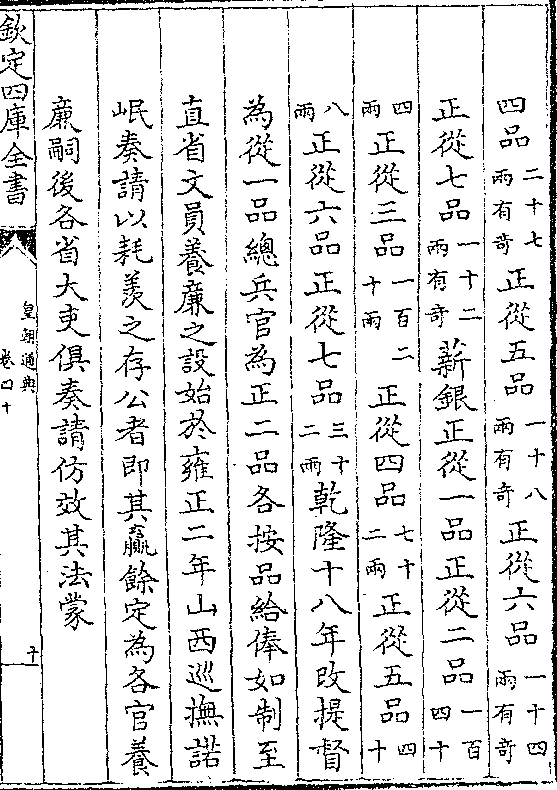 四品二十七兩有奇正從五品一十八兩有奇正從六品一十四兩有奇
正從七品一十二兩有奇薪銀正從一品正從二品一百四十
四兩正從三品一百二十兩正從四品七十二兩正從五品四十
八兩正從六品正從七品三十二兩乾隆十八年改提督
為從一品總兵官為正二品各按品給俸如制至
直省文員養廉之設始於雍正二年山西巡撫諾
岷奏請以耗羡之存公者即其贏餘定為各官養
廉嗣後各省大吏俱奏請仿效其法蒙
欽定四庫全書
皇朝通典
卷四十
十